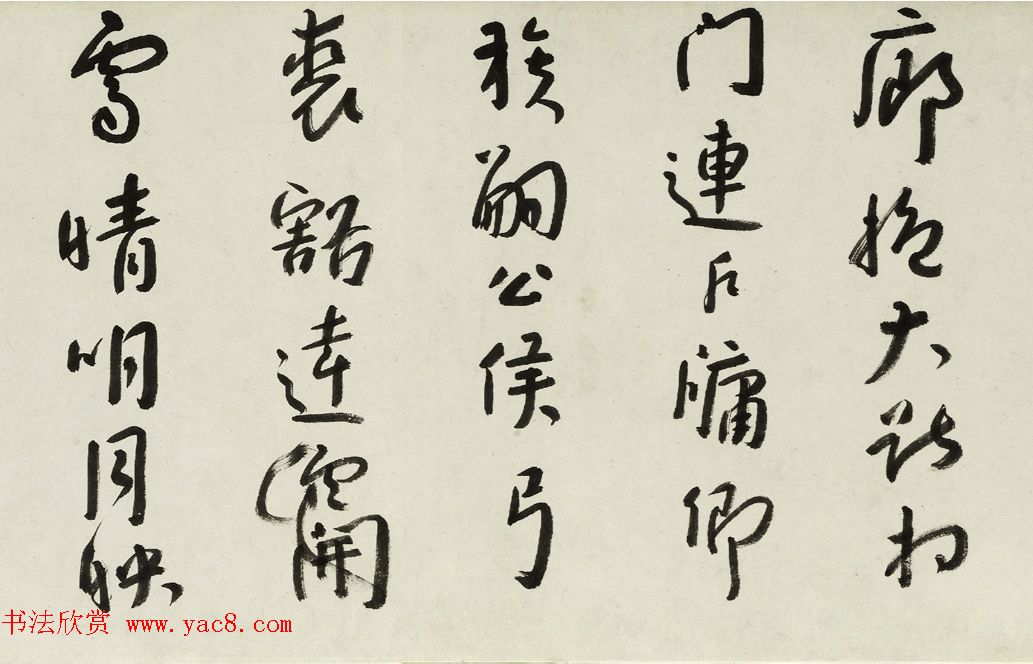 廊抱大猷相
门連户牖卿
族嗣公侯弓
裘豁達雲開
霽晴明月映
书法欣赏 www.yac8.com